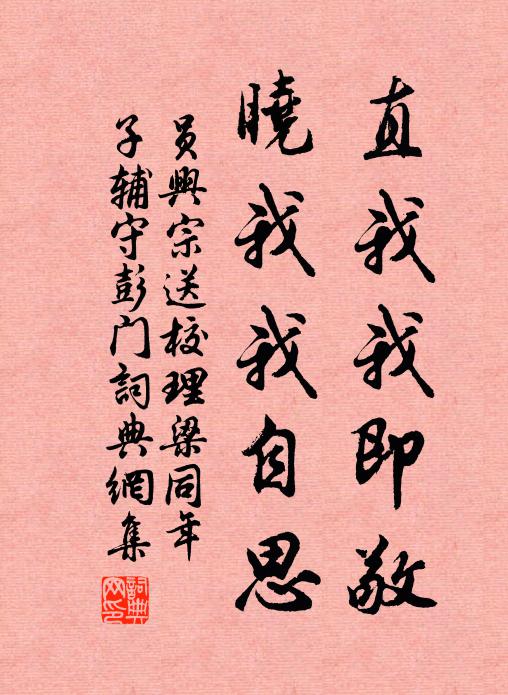 直我我即敬
曉我我自思
员興宗送校理梁同年
子辅守彭门詞典網集
詞典网印